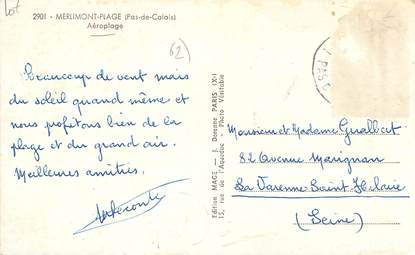 Lot
2901 - MERLIMONT-PLAGE (Pas-de-Calais)
Aéroplage
62
Beaucoup de vent mais
du soleil quand même et
nous profitons bien de la
plage et du grand air.
Meilleures amitiés.
Edition MAGE - Desenne PARIS (XX)
15, rue de l'Aqueduc - Photo Véritable
Monsieur et Madame Gualbert
82 Avenue Marignan
La Varenne Saint Hilaire
(Seine)